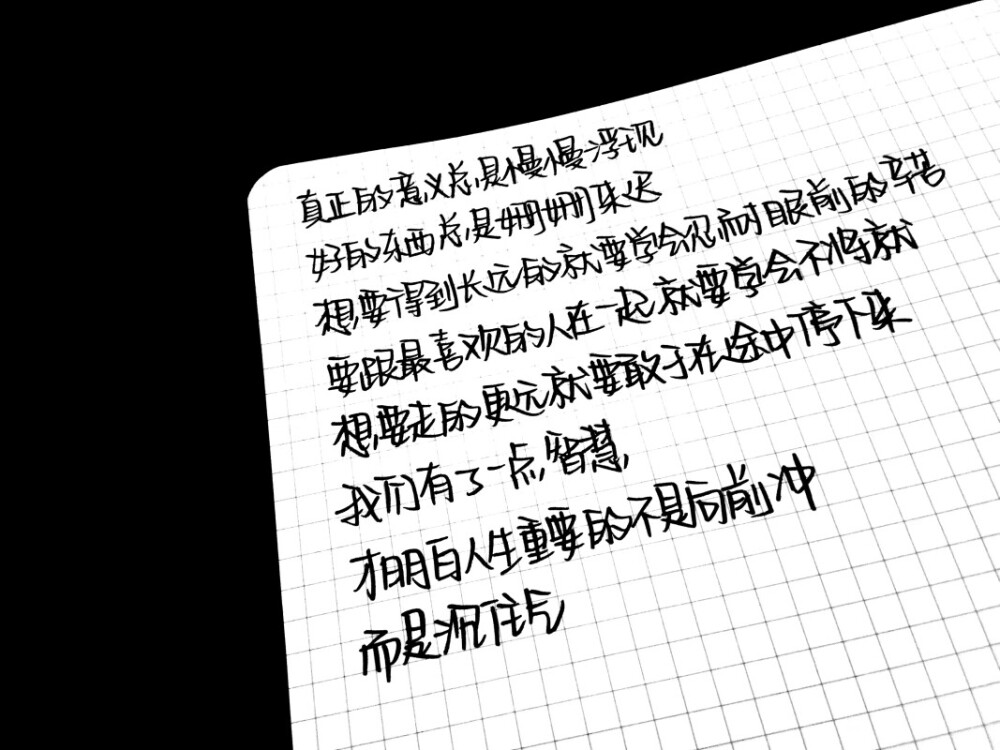 真正的意义总是慢慢浮现
好的东西总是姗姗来迟
想要得到长远的就要学会忍耐眼前的辛苦
要跟最喜欢的人在一起就要学会不将就
想要走的更远就要敢于在途中停下来
我们有了一点智慧,
才明白人生重要的不是向前冲
而是沉住气